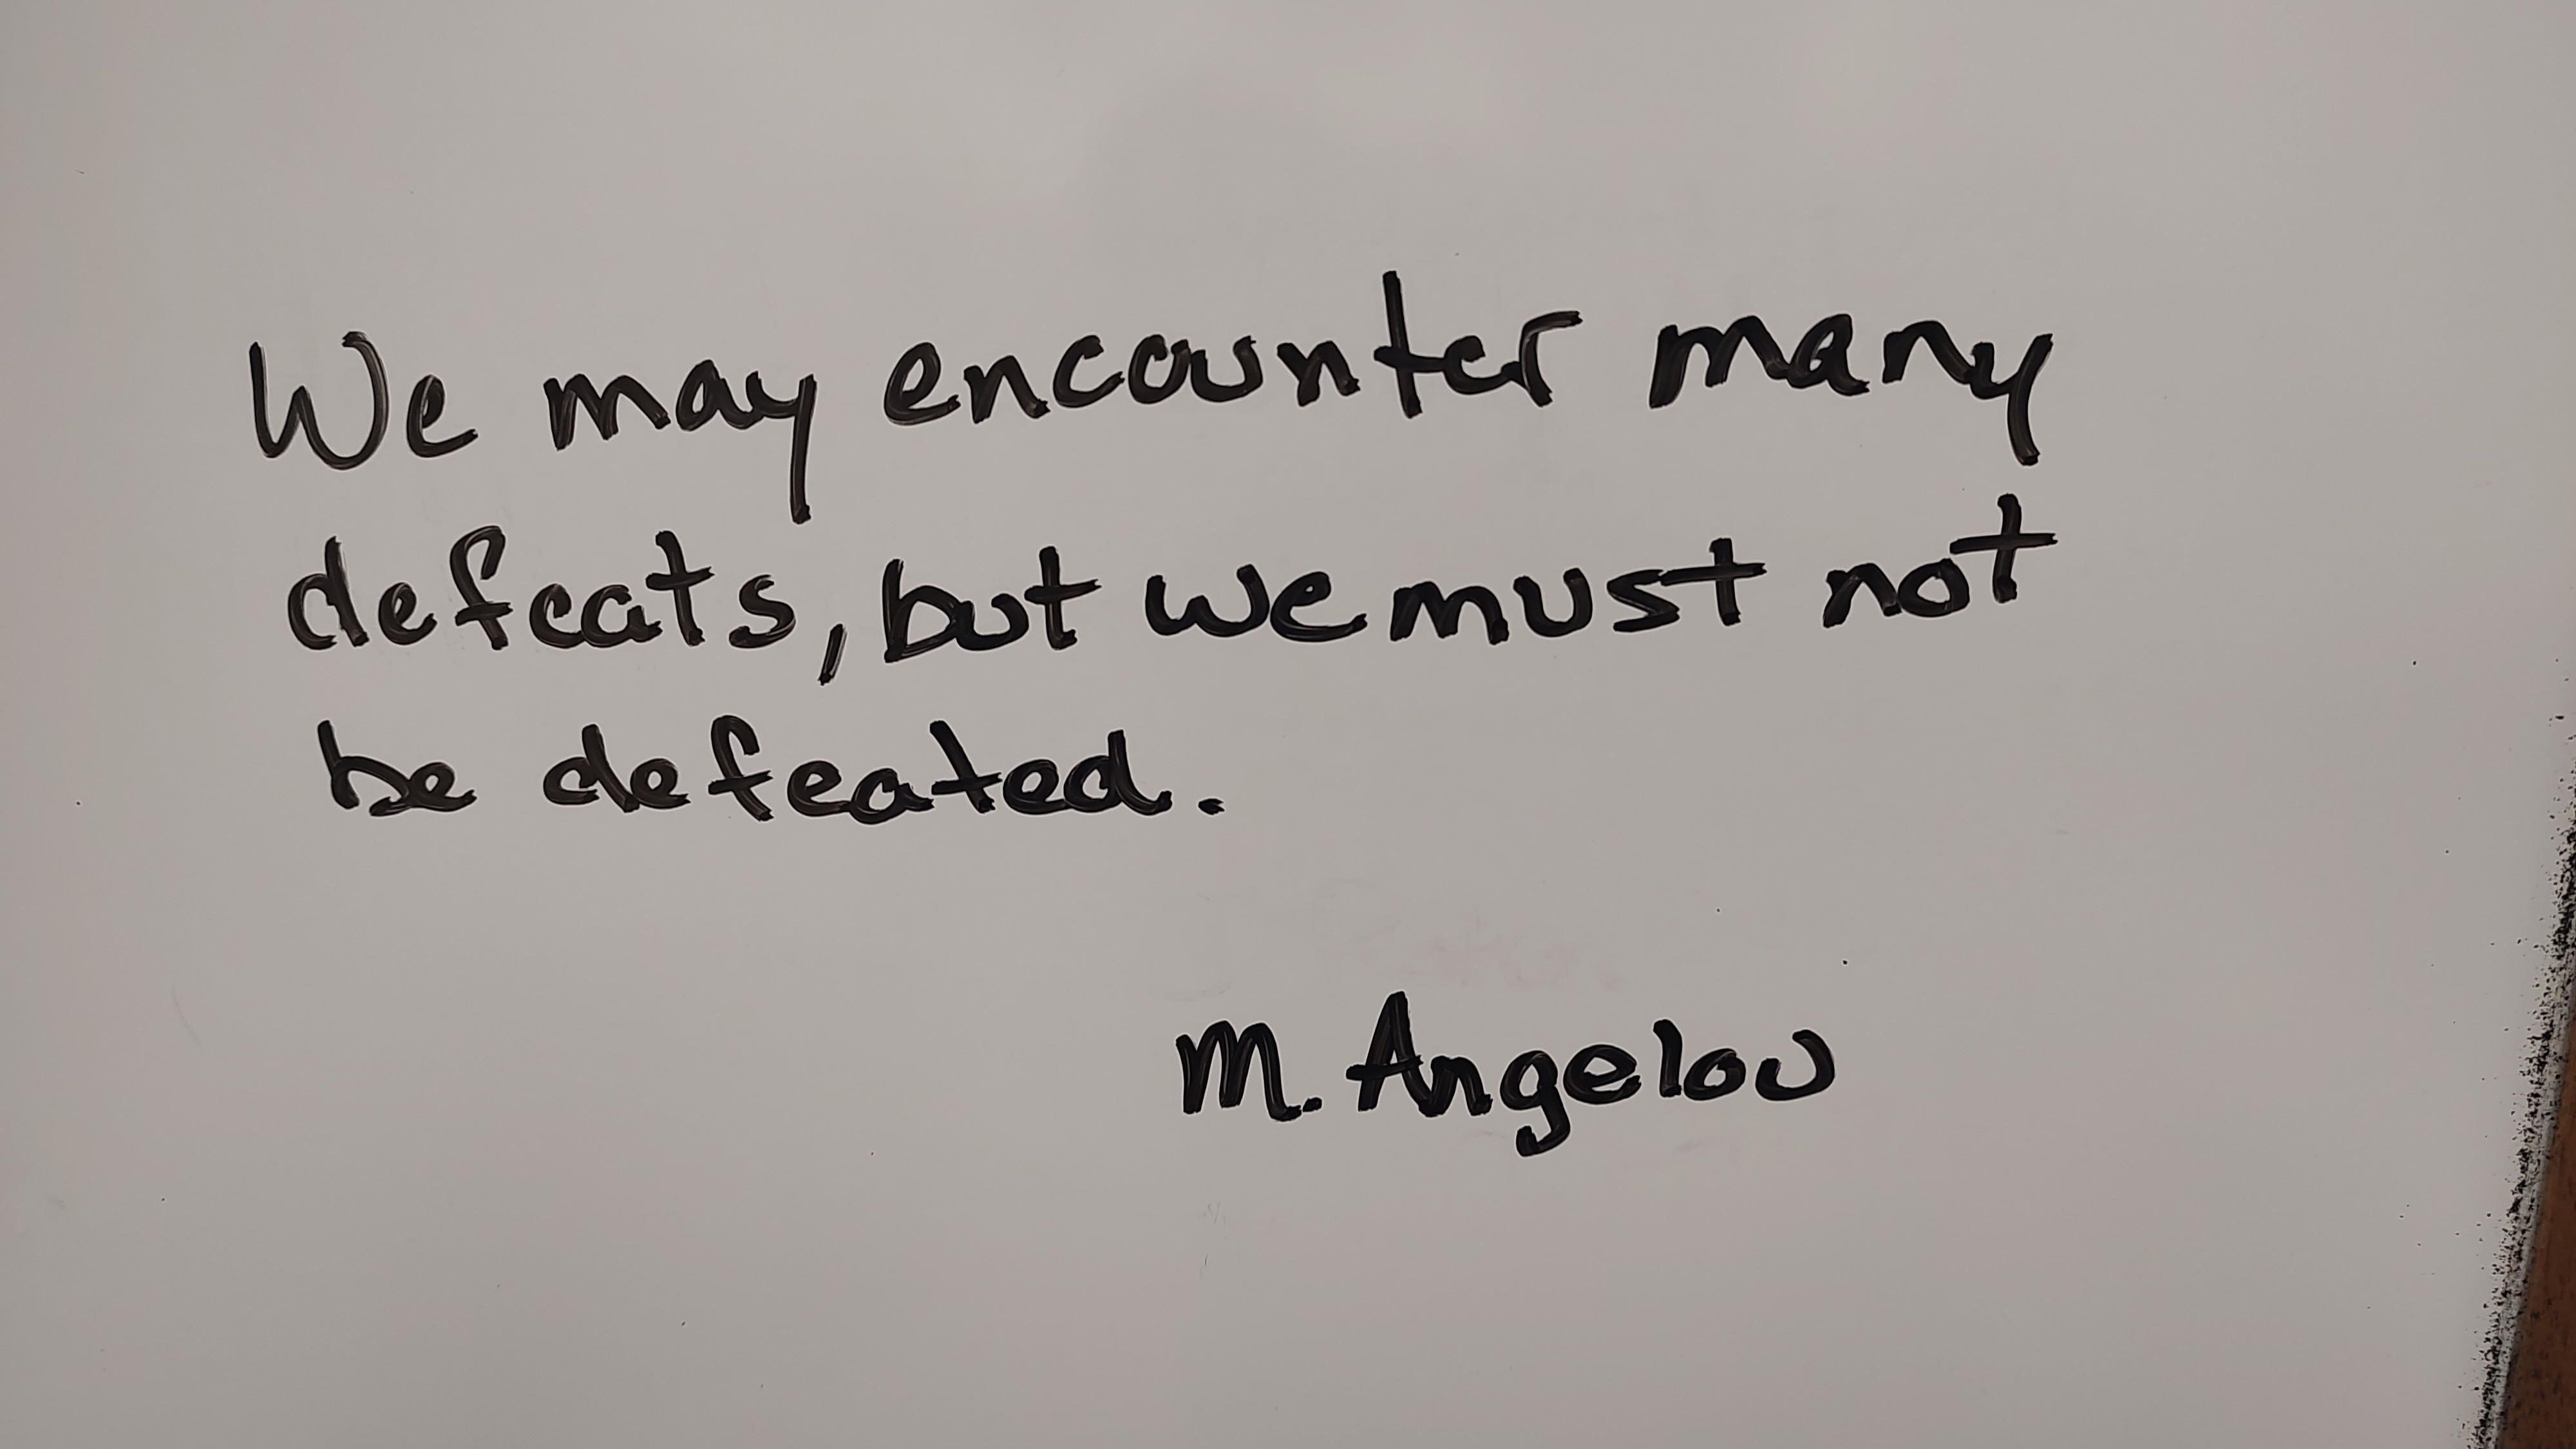 We may encounter many
defeats, but we must not
be defeated.
M. Angelou